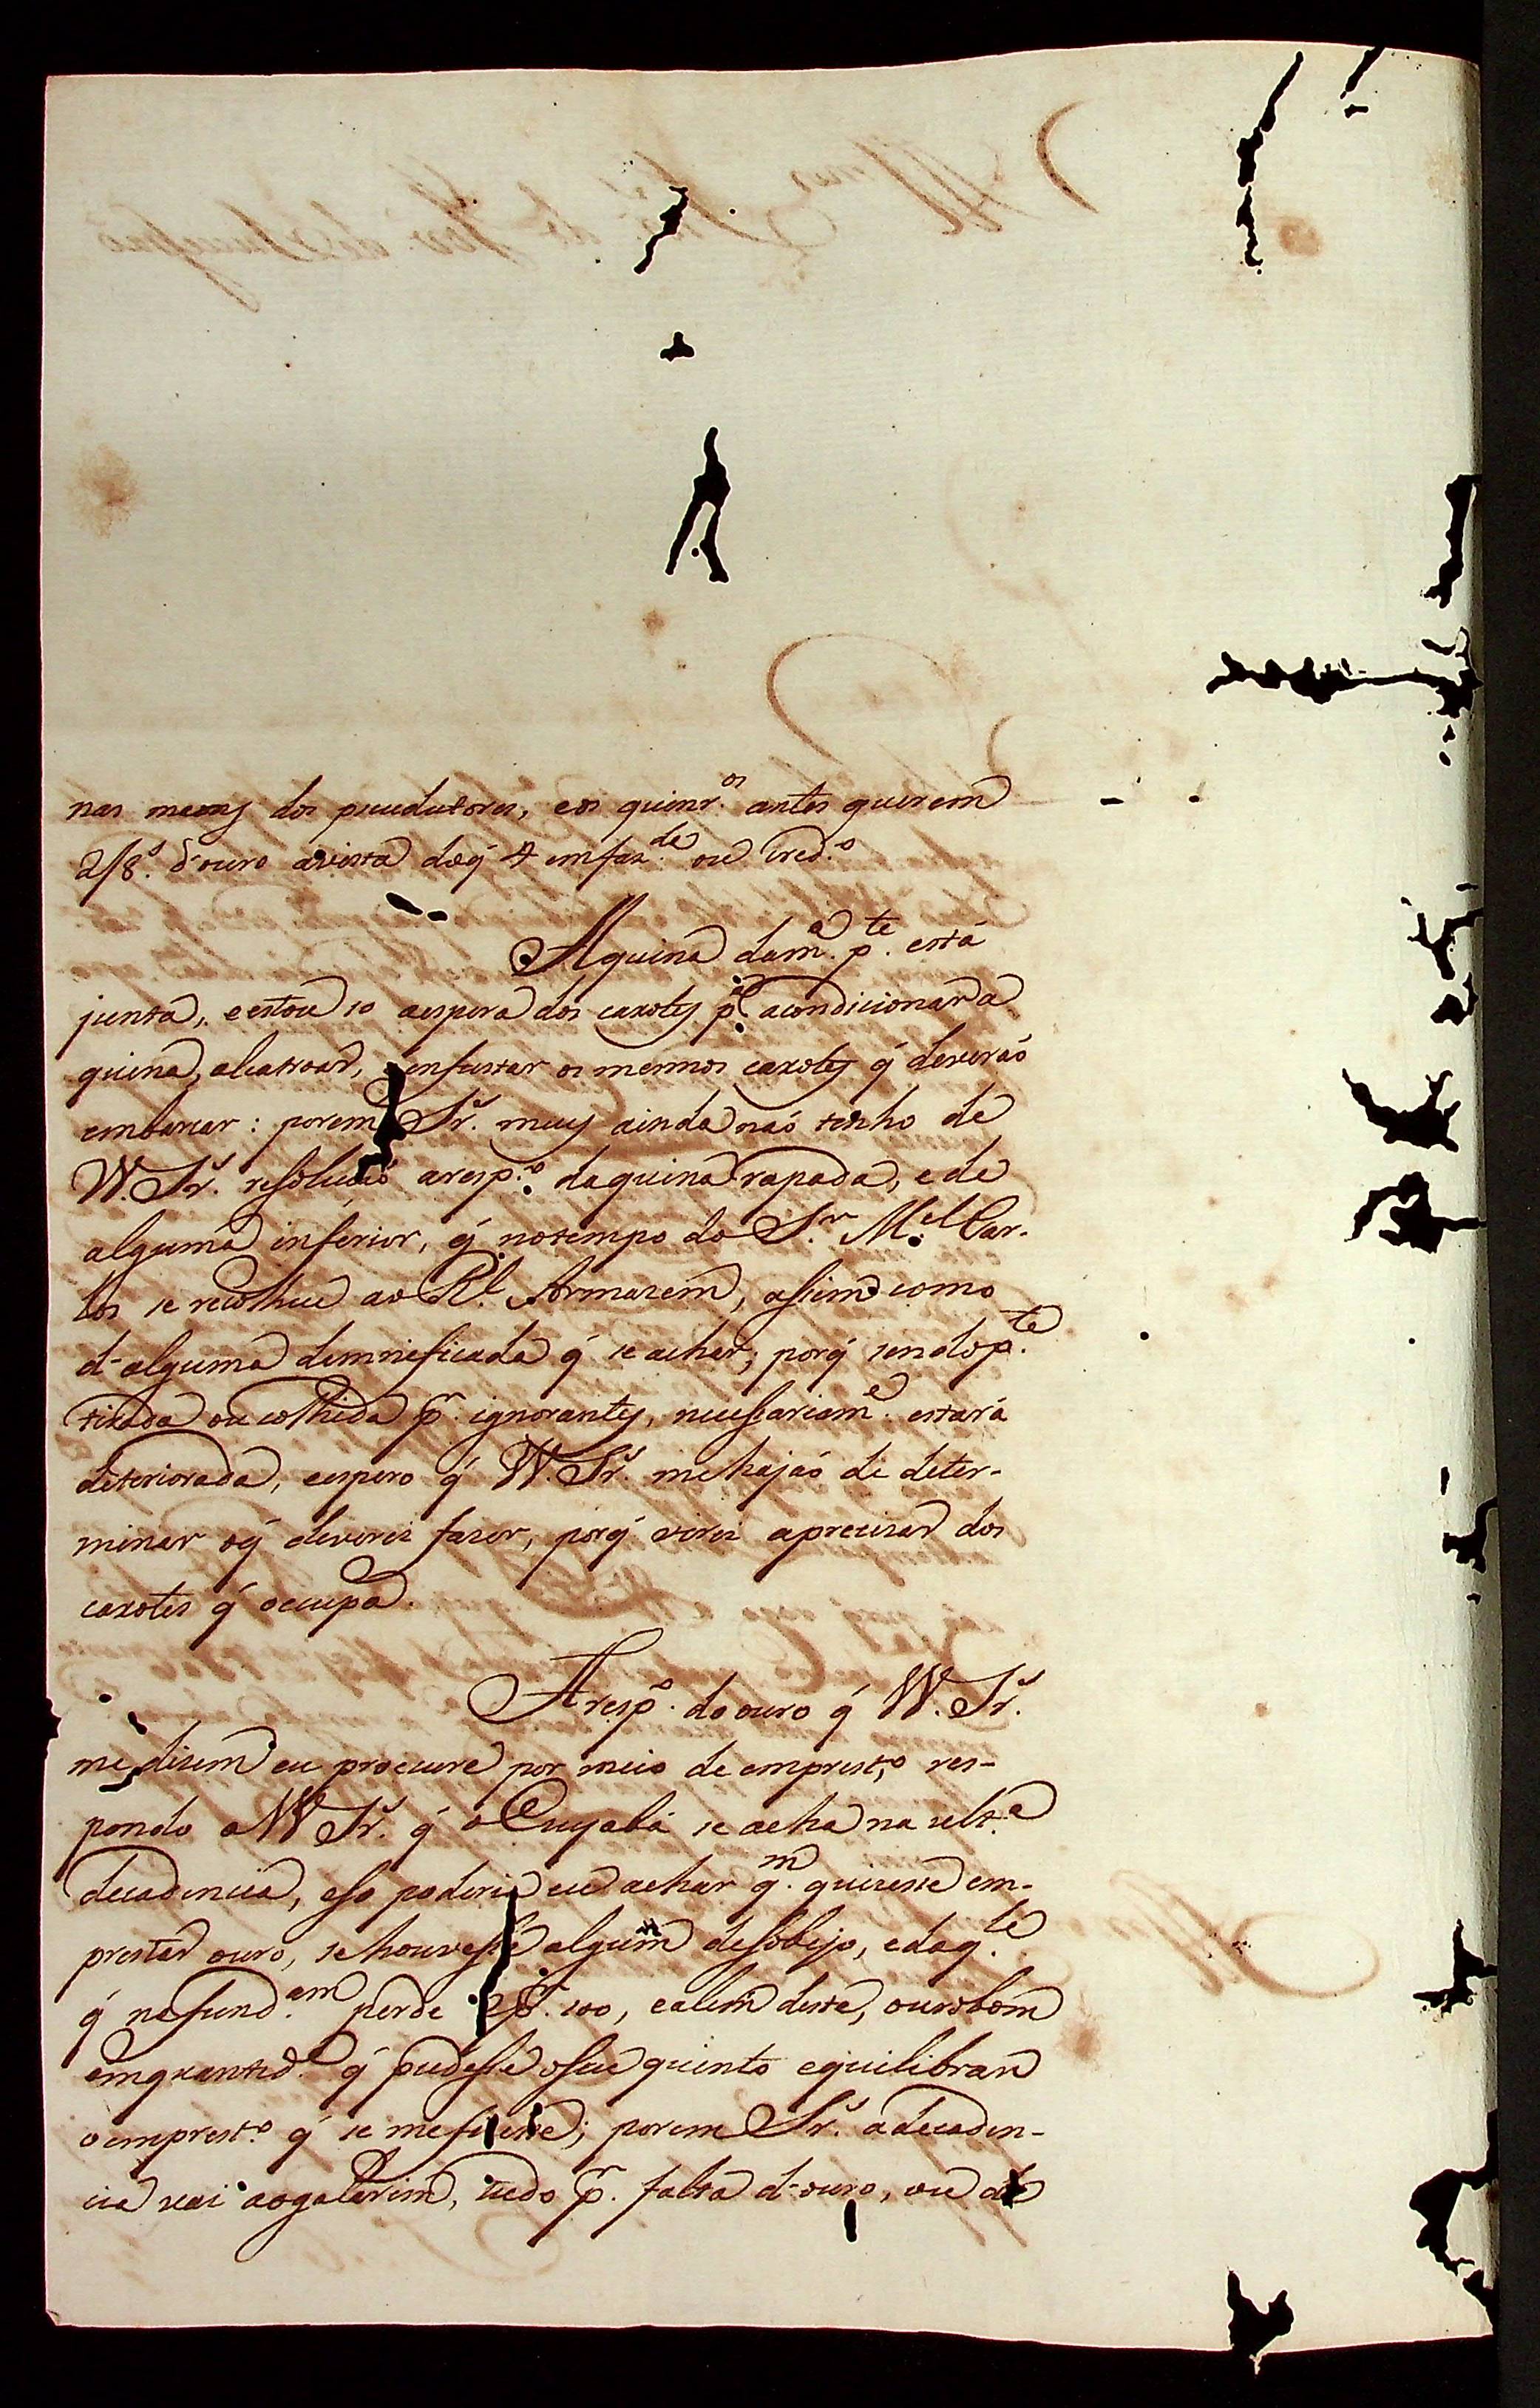 nas maons dos pruductores, e os quinr.os antes querem
2/8.s d'ouro avista doq̃ 4 emfaz.da ou cred.o
Aquina dam.a p.te está
junta, e estou so aespera dos caxotes p.a acondicionar a
quina, alcatroar, enfustar os mesmos caxotes q̃ deveráo
embarcar: porem Sr.s muy ainda náo tenho de
W. Sr.s resoluçáo aresp.o daquina rapada, e de
alguma inferior, q̃ notempo do S.r M.el Car-
los se recolheu ao R.l Armazem, assim como
d'alguma demneficada q̃ se achar; porq̃ sendo p.te
tirada ou colhida p.r ignorantes, necessariam.e estará
deteriorada, e espero q̃ W. Sr.s me hajáo de deter-
minar oq̃ deverei fazer, porq̃ virei a precizar dos
caxotes q̃ occupa.
Aresp.o do ouro q̃ W. Sr.s
me dizem eu procure por meio de emprest.o res-
pondo a W Sr.s q̃ o Cuyabá se acha na ult.a
decadencia, e so poderia eu achar q.m quizesse em-
prestar ouro, se houvesse algum desobejo, e daq.le
q̃ nafund.am perde 2 p.r 100, e alem deste, ouro bom
emquantid.e q̃ pudesse oseu quinto equilibrar
oemprest.o q̃ se mefizesse; porem Sr.s adecaden-
cia vai aogalarim, tudo p.r falta d'ouro, ou de